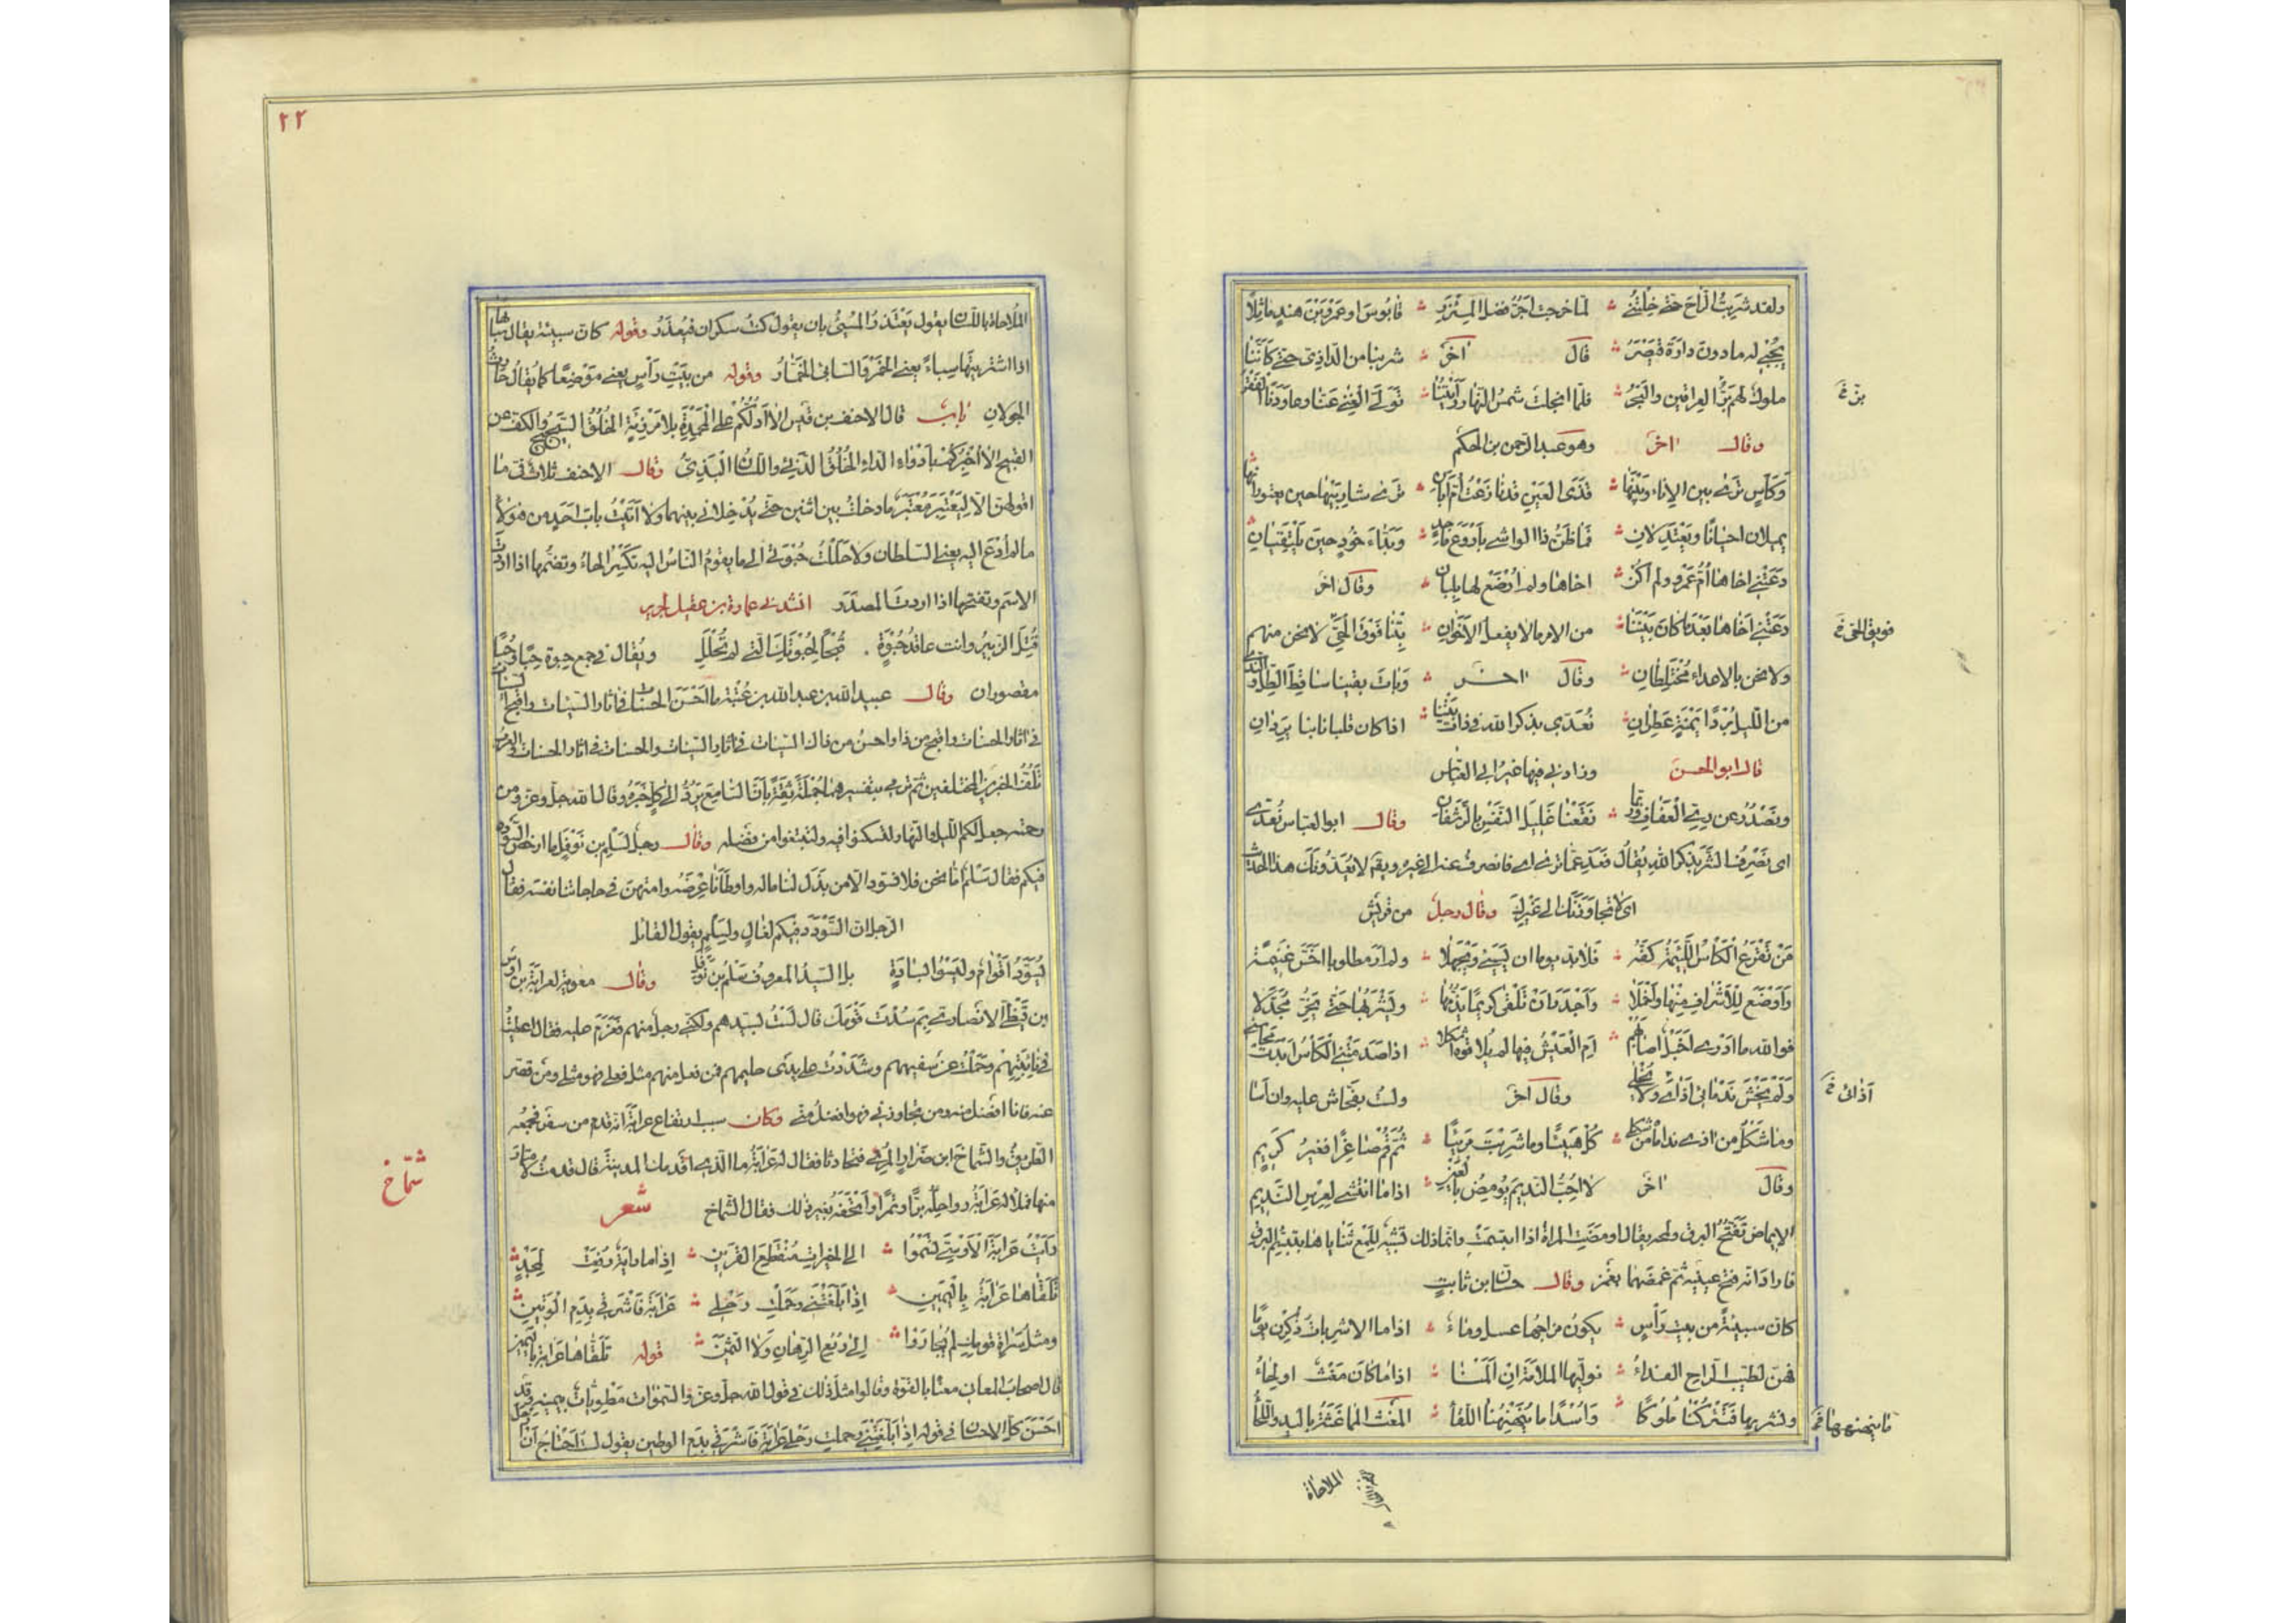 ولقد شربت الراح حتى خلتني ؞ لما خرجت اجر فضل المئزر ؞ قابوس او عمرو بن هند ماثلا
يجبى له ما دون دارة قيصر ؞ قال اخر ؞ شربنا من الداذي حتى كاننا
ملوك لهم بر العراقين والبحر ؞ فلما انجلت شمس النهار رايتنا ؞ تولى الغنى عنا وعاودنا الفقر
وقال اخر وهو عبد الرحمن بن الحكم
وكأس ترى بين الاناء وبينها ؞ قذى العين قد نازعت ام ابان ؞ ترى شاربيها حين يعتورانها
يميلان احيانا ويعتدلان ؞ فما ظن ذا الواشي باروع ماجد ؞ وبداء خود حين يلتقيان
دعتني اخاها ام عمرو ولم اكن ؞ اخاها ولم ارضع لها بلبان ؞ وقال اخر
دعتني اخاها بعد ما كان بيننا ؞ من الامر ما لا يفعل الاخوان ؞ بتنا فوق الحي لا نحن منهم
ولا نحن بالاعداء مختلطان ؞ وقال اخر ؞ وبات يقينا ساقط الطل والندى
من الليل بردا يمنة عطران ؞ نعدي بذكر الله في ذات بيننا ؞ اذا كان قلبانا بنا يردان
قال ابو الحسن وزادني فيها غير ابي العباس
ونصدر عن ري العفاف وربما ؞ نقعنا غليل النفس بالرشفان وقال ابو العباس نعدي
اى نصرف الشر بذكر الله يقال فعد عما ترى اى فانصرف عنه الى غيره ويقال لا يعدونك هذا الحديث
اى لا يتجاوزنك الى غيرك وقال رجل من قريش
من تقرع الكأس اللئيمة كفه ؞ فلا بد يوما ان يسيء ويجهلا ؞ ولم ار مطلوبا اخس غنيمة
واوضع للاشراف منها واخملا ؞ واجدر ان تلقى كريما يذمها ؞ ويشربها حتى يخر مجدلا
فوالله ما ادرى اخبل اصابهم ؞ ام العيش فيها لم يلاقوه اشكلا ؞ اذا صدمتني الكأس ابدت محاسني
ولم يخش ندماني اذاتي ولا بخلي وقال اخر ولست بفحاش عليه وان اسا
وما شكل من اذى نداماه من شكلي ؞ كل هنيئا وما شربت مريئا ؞ ثم قم صاغرا فغير كريم
وقال اخر لا احب النديم يومض بالعين ؞ اذا ما انتشى لعرس النديم
الايماض تفتح البرق ولمحه يقال اومضت المراة اذا ابتسمت وانما ذلك تشبيه للمع ثناياها بتبسم البرق
فاراد انه فتح عينيه ثم غمضها بغمز وقال حسان بن ثابت
كان سبيئة من بيت رأس ؞ يكون مزاجها عسل وماء ؞ اذا ما الاشربات ذكرن يوما
فهن لطيب الراح الفداء ؞ نوليها الملامة ان المنا ؞ اذا ما كان مغث او لحاء
ونشربها فتتركنا ملوكا ؞ واسدا ما ينهنهنا اللقاء ؞ المغث المماغثة باليد واللحاء
بز خ
فويق الحي خ
آذاتي خ
ما ينهنهها خ
الملاحاة
٢٢
الملاحاة باللسان يقول يعتذر المسيء بان يقول كنت سكران فيعذر وقوله كان سبيئة يقال سباها
اذا اشتريتها سباء يعني الخمر والسابي الخمار وقوله من بيت رأس يعني موضعا كما يقال حارث
الجولان باب قال الاحنف بن قيس الا ادلكم على المحمدة بلا مرزية الخلق السجيح والكف عن
القبيح الا اخبركم بادواء الداء الخلق الدني واللسان البذي وقال الاحنف ثلاث في ما
اقولهن الا ليعتبر معتبر ما دخلت بين اثنين حتى يدخلاني بينهما ولا اتيت باب احد من هؤلاء
ما لم ادع اليه يعني السلطان ولا حللت حبوتي الى ما يقوم الناس اليه تكسر الحاء وتضمها اذا اردت
الاسم وتفتحها اذا اردت المصدر انشدني عمارة بن عقيل لجرير
قتل الزبير وانت عاقد حبوة . قبحا لحبوتك التي لم تحلل ويقال في جمع حبوة حبا وحبا
مقصوران وقال عبيد الله بن عبد الله بن عتبة ما احسن الحسنات في اثار السيئات واقبح السيئات
في اثار الحسنات واقبح من ذا واحسن من ذاك السيئات في اثار السيئات والحسنات في اثار الحسنات والعرب
تلف الخبرين المختلفين ثم ترمي بتفسيرهما جملة ثقة بان السامع يرد الى كل خبره وقال الله جل وعز ومن
رحمته جعل لكم الليل والنهار لتسكنوا فيه ولتبتغوا من فضله وقال رجل لسلم بن نوفل ما ارخص السودد
فيكم فقال سلم اما نحن فلا نسود الا من بذل لنا ماله واوطأنا عرضه وامتهن في حاجاتنا نفسه فقال
الرجل ان السودد فيكم لغال ولسلم يقول القائل
يسود اقوام وليسوا بسادة بل السيد المعروف سلم بن نوفل وقال معوية لعرابة بن اوس
بن قيظي الانصاري بم سدت قومك قال لست بسيدهم ولكني رجل منهم فعزم عليه فقال اعطيت
في نائبتهم وحلمت عن سفيههم وشددت على يدي حليمهم فمن فعل منهم مثل فعلي فهو مثلي ومن قصر
عنه فانا افضل منه ومن تجاوزني فهو افضل مني وكان سبب ارتفاع عرابة انه قدم من سفر فجمعه
الطريق والشماخ ابن ضرار المري فتحادثا فقال له عرابة ما الذي اقدمك المدينة قال قدمت لامتار
منها فملأ له عرابة رواحله برا وتمرا واتحفه بغير ذلك فقال الشماخ شعر
رأيت عرابة الاوسي يسموا ؞ الى الخيرات منقطع القرين ؞ اذا ما راية رفعت لمجد ؞
تلقاها عرابة باليمين ؞ اذا بلغتني وحملت رحلي ؞ عرابة فاشرقي بدم الوتين ؞
ومثل سراة قومك لم يجاروا ؞ الى ربع الرهان ولا الثمين ؞ قوله تلقاها عرابة باليمين
قال اصحاب المعاني معناه بالقوة وقالوا مثل ذلك في قول الله جل وعز والسموات مطويات بيمينه وقد
احسن كل الاحسان في قوله اذا بلغتني وحملت رحلي عرابة فاشرقي بدم الوتين يقول لست احتاج ان
شماخ